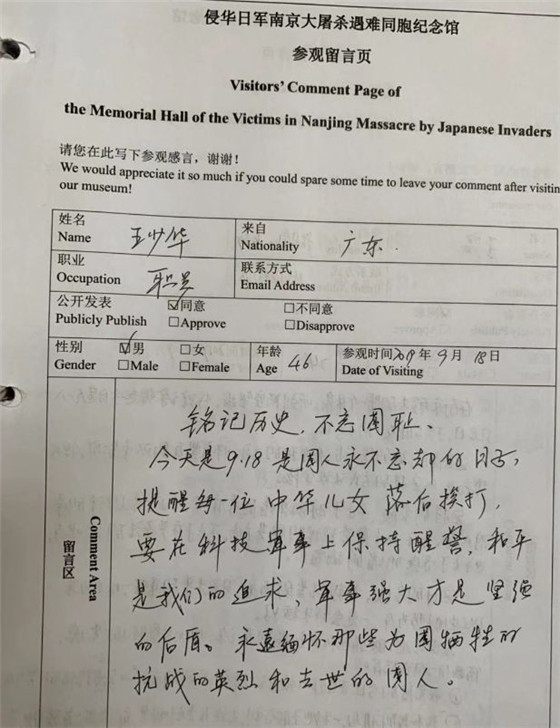 侵华日军南京大屠杀遇难同胞纪念馆
参观留言页
Visitors' Comment Page of
the Memorial Hall of the Victims in Nanjing Massacre by Japanese Invaders
请您在此写下参观感言，谢谢！
We would appreciate it so much if you could spare some time to leave your comment after visitin
our museum!
姓名 王少华 来自 广东.
Name Nationality
职业 职员 联系方式
Occupation Email Address
公开发表 ☑同意 □不同意
Publicly Publish □Approve □Disapprove
性别 ☑男 □女 年龄 46 参观时间2019年9月18日
Gender □Male □Female Age Date of Visiting
留言区 Comment Area
铭记历史，不忘国耻、
今天是9.18是国人永不忘却的日子，
提醒每一位中华儿女落后挨打，
要在科技军事上保持醒警，和平
是我们的追求、军事强大才是坚强
的后盾。永远缅怀那些为国牺牲的
抗战的英烈和去世的国人。